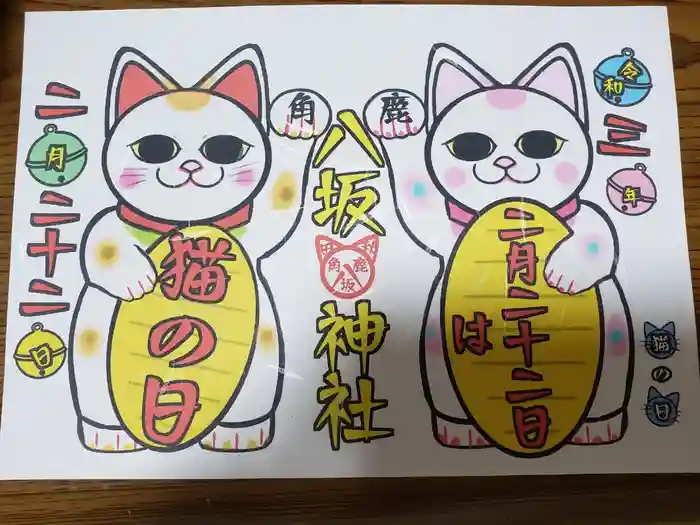 令和
三
年
二月二十二日
は
猫の日
鹿
角
八坂
鹿角八坂
神社
猫の日
二
月
二十二
日